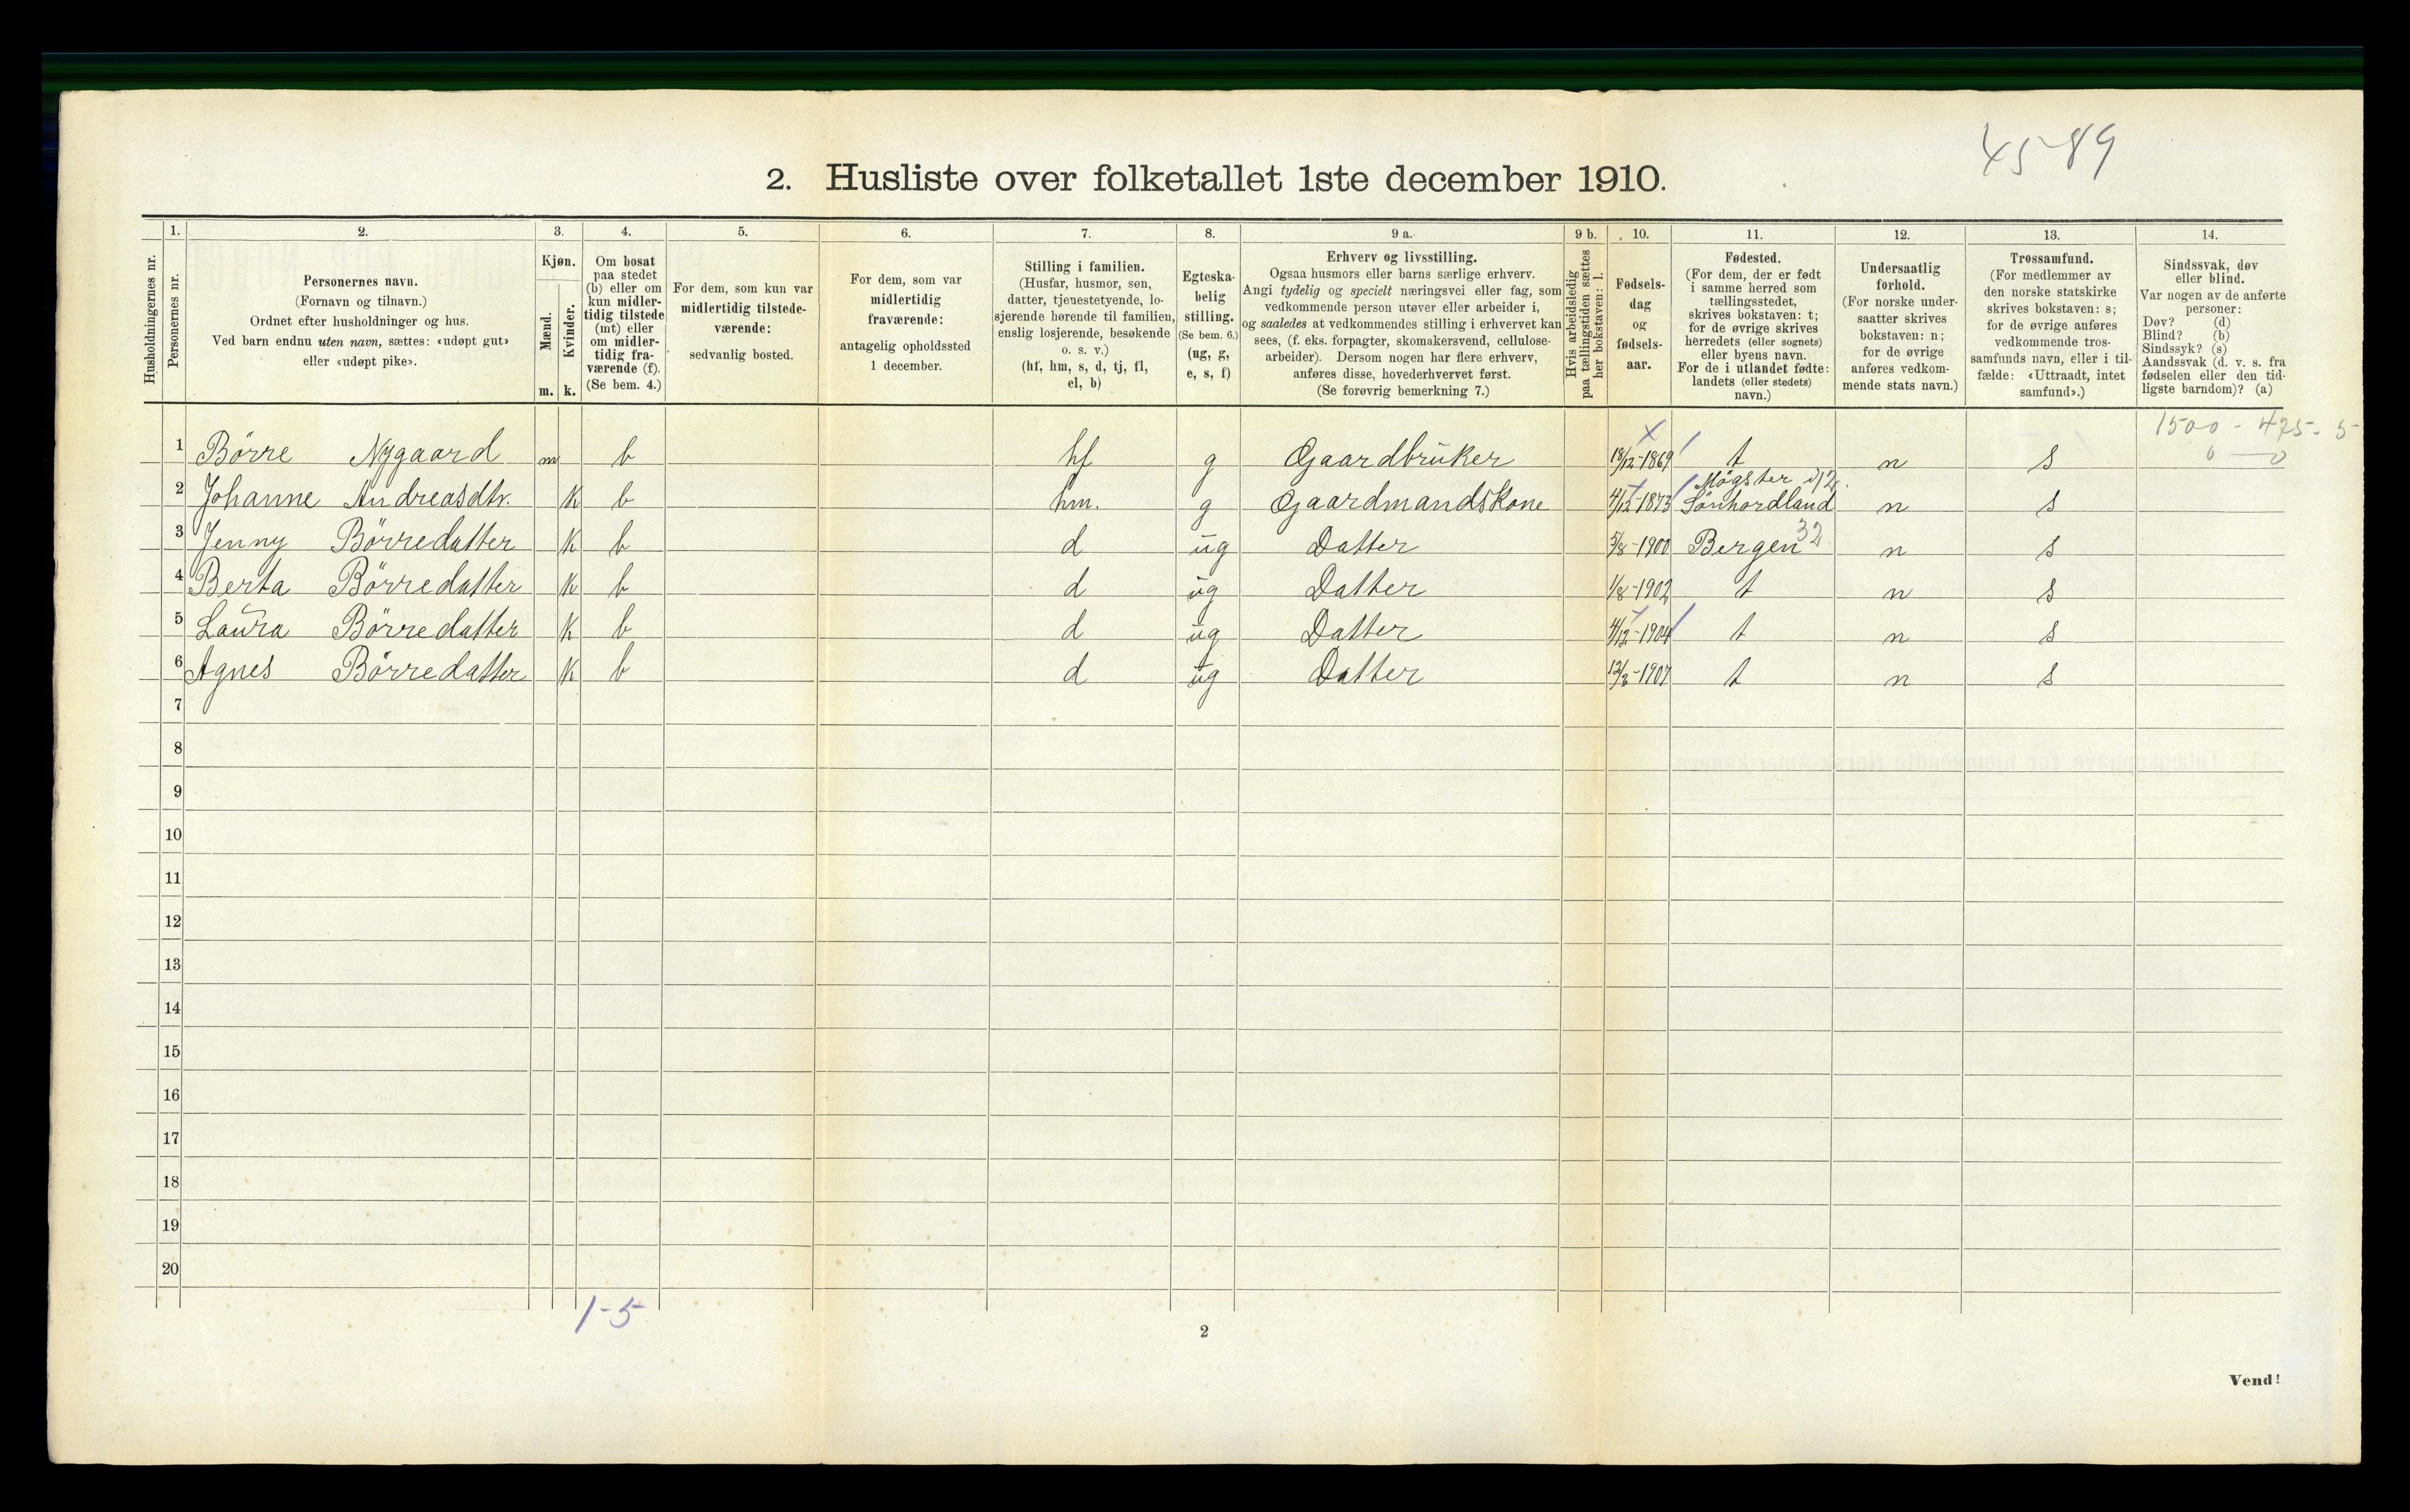 45-89
2. Husliste over folketallet 1ste december 1910.
1. 2. 3. 4. 5. 6. 7. 8. 9 a. 9 b. 10. 11. 12. 13. 14.
Husholdningernes nr.
Personernes nr.
Personernes navn.
(Fornavn og tilnavn.)
Ordnet efter husholdninger og hus.
Ved barn endnu uten navn, sættes: «udøpt gut»
eller «udøpt pike».
Kjøn.
Mænd.
Kvinder.
m. k.
Om bosat
paa stedet
(b) eller om
kun midler-
tidig tilstede
(mt) eller
om midler-
tidig fra-
værende (f).
(Se bem. 4.)
For dem, som kun var
midlertidig tilstede-
værende:
sedvanlig bosted.
For dem, som var
midlertidig
fraværende:
antagelig opholdssted
1 december.
Stilling i familien.
(Husfar, husmor, søn,
datter, tjenestetyende, lo-
sjerende hørende til familien,
enslig losjerende, besøkende
o. s. v.)
(hf, hm, s, d, tj, fl,
el, b)
Egteska-
belig
stilling.
(Se bem. 6.)
(ug, g,
e, s, f)
Erhverv og livsstilling.
Ogsaa husmors eller barns særlige erhverv.
Angi tydelig og specielt næringsvei eller fag, som
vedkommende person utøver eller arbeider i,
og saaledes at vedkommendes stilling i erhvervet kan
sees, (f. eks. forpagter, skomakersvend, cellulose-
arbeider). Dersom nogen har flere erhverv,
anføres disse, hovederhvervet først.
(Se forøvrig bemerkning 7.)
Hvis arbeidsledig
paa tællingstiden sættes
her bokstaven: l.
Fødsels-
dag
og
fødsels-
aar.
Fødested.
(For dem, der er født
i samme herred som
tællingsstedet,
skrives bokstaven: t;
for de øvrige skrives
herredets (eller sognets)
eller byens navn.
For de i utlandet fødte:
landets (eller stedets)
navn.)
Undersaatlig
forhold.
(For norske under-
saatter skrives
bokstaven: n;
for de øvrige
anføres vedkom-
mende stats navn.)
Trossamfund.
(For medlemmer av
den norske statskirke
skrives bokstaven: s;
for de øvrige anføres
vedkommende tros-
samfunds navn, eller i til-
fælde: «Uttraadt, intet
samfund».)
Sindssvak, døv
eller blind.
Var nogen av de anførte
personer:
Døv? (d)
Blind? (b)
Sindssyk? (s)
Aandssvak (d. v. s. fra
fødselen eller den tid-
ligste barndom)? (a)
1500 - 475 - 5
0 — 0
1 Börre Nygaard m b hf g Gaardbruker 18/12-1869 t n s
Møgster i 12
2 Johanne Andreasdtr. k b hm. g Gaardmandskone 4/12-1873 Sönhordland n s
3 Jenny Börredatter k b d ug Datter 5/8-1900 Bergen 32 n s
4 Berta Börredatter k b d ug Datter 1/8-1902 t n s
5 Laura Börredatter k b d ug Datter 4/12-1904 t n s
6 Agnes Börredatter k b d ug Datter t n s
7
8
9
10
11
12
13
14
15
16
17
18
19
20
1-5
2
Vend!